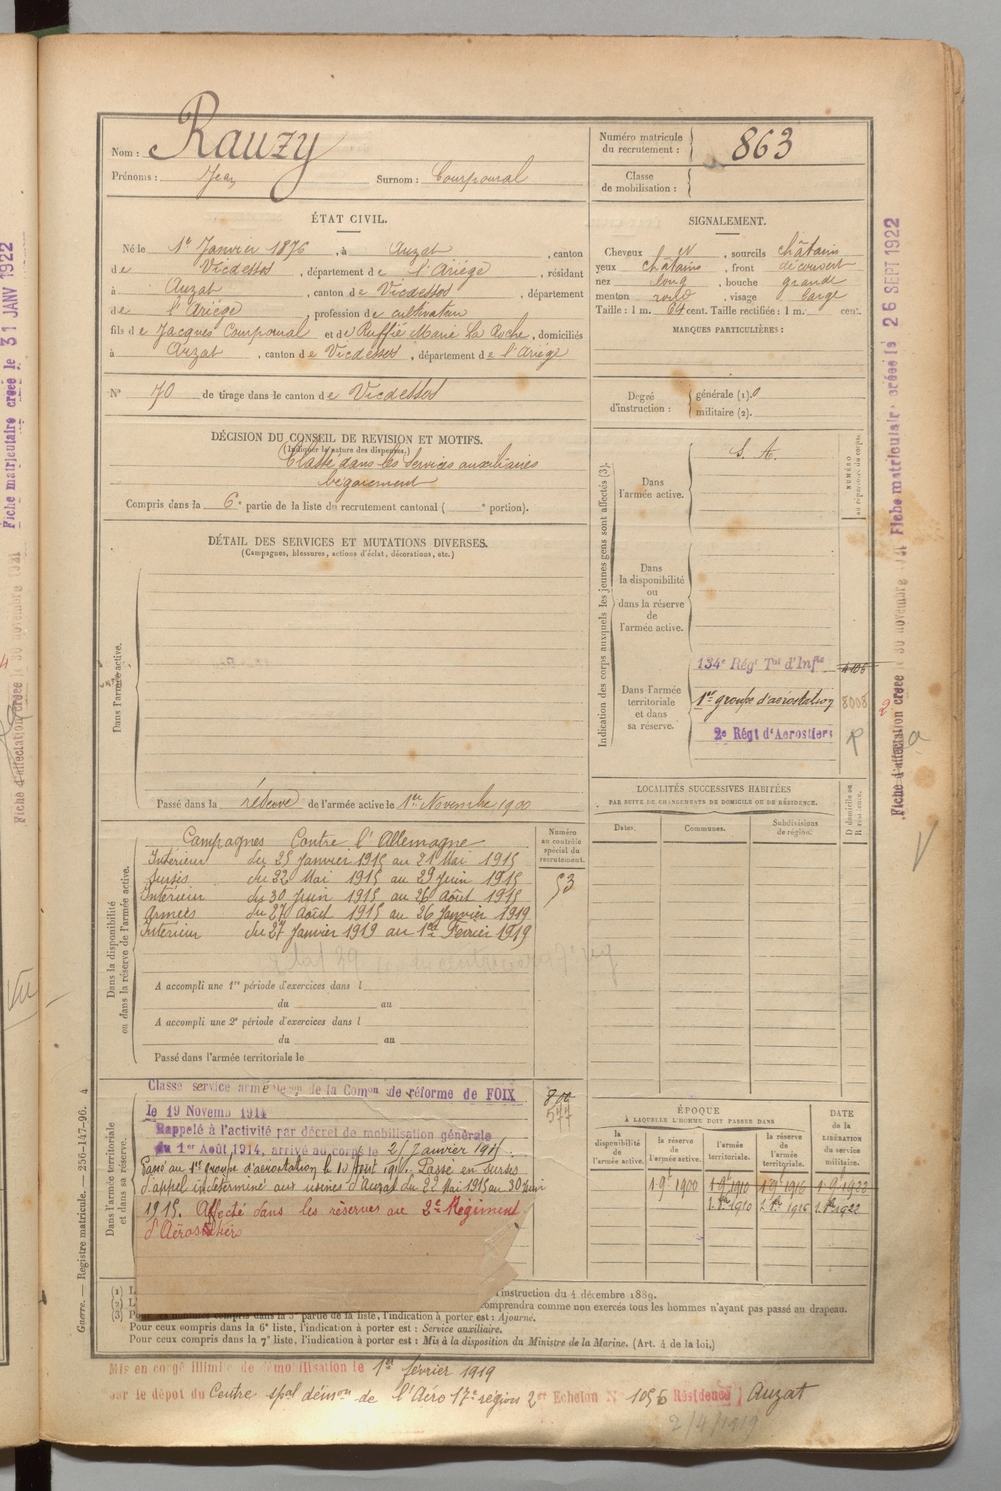 Nom : Rauzy
Prénoms : Jean Surnom : Courpoural
Numéro matricule du recrutement : 863
Classe de mobilisation :
ÉTAT CIVIL.
Né le 1er Janvier 1876, à Auzat, canton
de Vicdessos, département de l'Ariège, résidant
à Auzat, canton de Vicdessos, département
de l'Ariège, profession de cultivateur
fils de Jacques Courpoural et de Ruffié Marie La Roche, domiciliés
à Auzat, canton de Vicdessos, département de l'Ariège
N° 70 de tirage dans le canton de Vicdessos
SIGNALEMENT.
Cheveux et, sourcils châtains
yeux châtains, front découvert
nez long, bouche grande
menton rond, visage large
Taille : 1 m. 64 cent. Taille rectifiée : 1 m. cent.
MARQUES PARTICULIÈRES :
Degré d'instruction : générale (1). 0
militaire (2).
DÉCISION DU CONSEIL DE REVISION ET MOTIFS.
(Indiquer la nature des dispenses.)
Classé dans les Services auxiliaires
bégaiement
Compris dans la 6e partie de la liste du recrutement cantonal ( e portion).
DÉTAIL DES SERVICES ET MUTATIONS DIVERSES.
(Campagnes, blessures, actions d'éclat, décorations, etc.)
Dans l'armée active.
Passé dans la réserve de l'armée active le 1er Novembre 1900
Indication des corps auxquels les jeunes gens sont affectés (3).
NUMÉRO au répertoire du corps.
Dans l'armée active. S. A.
Dans la disponibilité ou dans la réserve de l'armée active.
Dans l'armée territoriale et dans sa réserve.
134e Régt Tal d'Infie 4105
1er groupe d'aérostation 8008
2e Régt d'Aerostiers
LOCALITÉS SUCCESSIVES HABITÉES
PAR SUITE DE CHANGEMENTS DE DOMICILE OU DE RÉSIDENCE.
Dates. Communes. Subdivisions de région. D domicile ou R résidence.
Dans la disponibilité ou dans la réserve de l'armée active.
Numéro au contrôle spécial du recrutement.
53
Campagnes Contre l'Allemagne
Intérieur du 25 Janvier 1915 au 21 Mai 1915
Sursis du 22 Mai 1915 au 29 Juin 1915
Intérieur du 30 Juin 1915 au 26 Août 1915
Armées du 27 Août 1915 au 26 Janvier 1919
Intérieur du 27 Janvier 1919 au 1er Février 1919
A accompli une 1re période d'exercices dans l
du au
A accompli une 2e période d'exercices dans l
du au
Passé dans l'armée territoriale le
Dans l'armée territoriale et dans sa réserve.
Classé service armé de la Comon de réforme de FOIX
le 19 Novemb 1914
Rappelé à l'activité par décret de mobilisation générale
du 1er Août 1914, arrivé au corps le 25 Janvier 1915.
Passé au 1er groupe d'aérostation le Août 191. Passé en sursis
d'appel indéterminé aux usines d'Auzat du 22 Mai 1915 au 30 Juin
1915. Affecté dans les réserves au 2e Régiment
d'Aérostiers
577
ÉPOQUE
À LAQUELLE L'HOMME DOIT PASSER DANS
la disponibilité de l'armée active. la réserve de l'armée active. l'armée territoriale. la réserve de l'armée territoriale.
DATE de la LIBÉRATION du service militaire.
1 9bre 1900 1 9bre 1910 1 9bre 1916 1 9bre 1922
1910 1916 1922
l'instruction du 4 décembre 1889.
comprendra comme non exercés tous les hommes n'ayant pas passé au drapeau.
compris dans la 5e partie de la liste, l'indication à porter est : Ajourné.
Pour ceux compris dans la 6e liste, l'indication à porter est : Service auxiliaire.
Pour ceux compris dans la 7e liste, l'indication à porter est : Mis à la disposition du Ministre de la Marine. (Art. 4 de la loi.)
Guerre. — Registre matricule. — 256-147-96. 4
Mis en congé illimité de démobilisation le 1er février 1919
par le dépôt du Centre spal démon de l'Aéro 17e région 2e Echelon N° 1056 Résidence Auzat
2/4/1919
Fiche matriculaire créée le 31 JANV 1922
Fiche matriculaire créée le 26 SEPT 1922
Fiche d'affectation créée le 30 novembre 1921